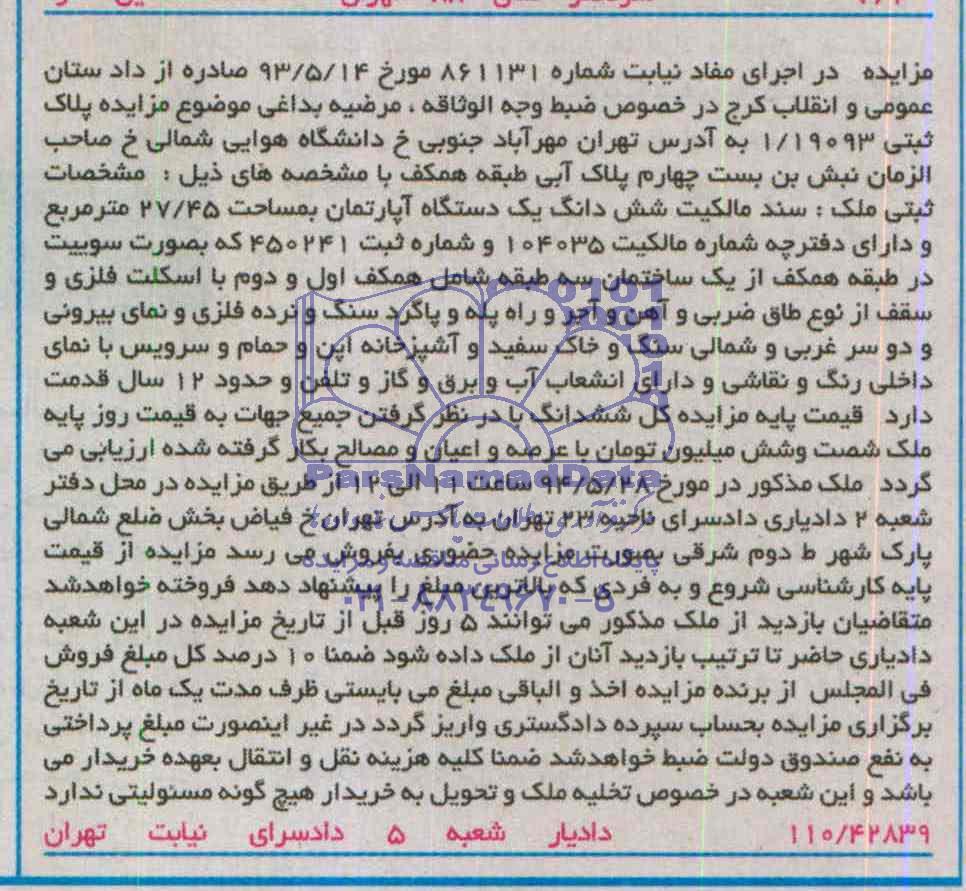 مزایده در اجرای مفاد نیابت شماره ۸۶۱۱۳۱ مورخ ۹۳/۵/۱۴ صادره از داد ستان
عمومی و انقلاب کرج در خصوص ضبط وجه الوثاقه ، مرضیه بداغی موضوع مزایده پلاک
ثبتی ۱/۱۹۰۹۳ به آدرس تهران مهرآباد جنوبی خ دانشگاه هوایی شمالی خ صاحب
الزمان نبش بن بست چهارم پلاک آبی طبقه همکف با مشخصه های ذیل : مشخصات
ثبتی ملک : سند مالکیت شش دانگ یک دستگاه آپارتمان بمساحت ۲۷/۴۵ مترمربع
و دارای دفترچه شماره مالکیت ۱۰۴۰۳۵ و شماره ثبت ۴۵۰۲۴۱ که بصورت سوییت
در طبقه همکف از یک ساختمان سه طبقه شامل همکف اول و دوم با اسکلت فلزی و
سقف از نوع طاق ضربی و آهن و آجر و راه پله و پاگرد سنگ و نرده فلزی و نمای بیرونی
و دو سر غربی و شمالی سنگ و خاک سفید و آشپزخانه اپن و حمام و سرویس با نمای
داخلی رنگ و نقاشی و دارای انشعاب آب و برق و گاز و تلفن و حدود ۱۲ سال قدمت
دارد قیمت پایه مزایده کل ششدانگ با در نظر گرفتن جمیع جهات به قیمت روز پایه
ملک شصت وشش میلیون تومان با عرصه و اعیان و مصالح بکار گرفته شده ارزیابی می
گردد ملک مذکور در مورخ ۹۴/۵/۲۸ ساعت ۱۱ الی ۱۲ از طریق مزایده در محل دفتر
شعبه ۲ دادیاری دادسرای ناحیه ۲۳ تهران به آدرس تهران خ فیاض بخش ضلع شمالی
پارک شهر ط دوم شرقی بصورت مزایده حضوری بفروش می رسد مزایده از قیمت
پایه کارشناسی شروع و به فردی که بالاترین مبلغ را پیشنهاد دهد فروخته خواهدشد
متقاضیان بازدید از ملک مذکور می توانند ۵ روز قبل از تاریخ مزایده در این شعبه
دادیاری حاضر تا ترتیب بازدید آنان از ملک داده شود ضمنا ۱۰ درصد کل مبلغ فروش
فی المجلس از برنده مزایده اخذ و الباقی مبلغ می بایستی ظرف مدت یک ماه از تاریخ
برگزاری مزایده بحساب سپرده دادگستری واریز گردد در غیر اینصورت مبلغ پرداختی
به نفع صندوق دولت ضبط خواهدشد ضمنا کلیه هزینه نقل و انتقال بعهده خریدار می
باشد و این شعبه در خصوص تخلیه ملک و تحویل به خریدار هیچ گونه مسئولیتی ندارد
۱۱۰/۴۲۸۳۹ دادیار شعبه ۵ دادسرای نیابت تهران
ParsNamadData
پایگاه اطلاع رسانی مناقصه و مزایده
۰۲۱-۸۸۳۴۹۶۷۰-۵